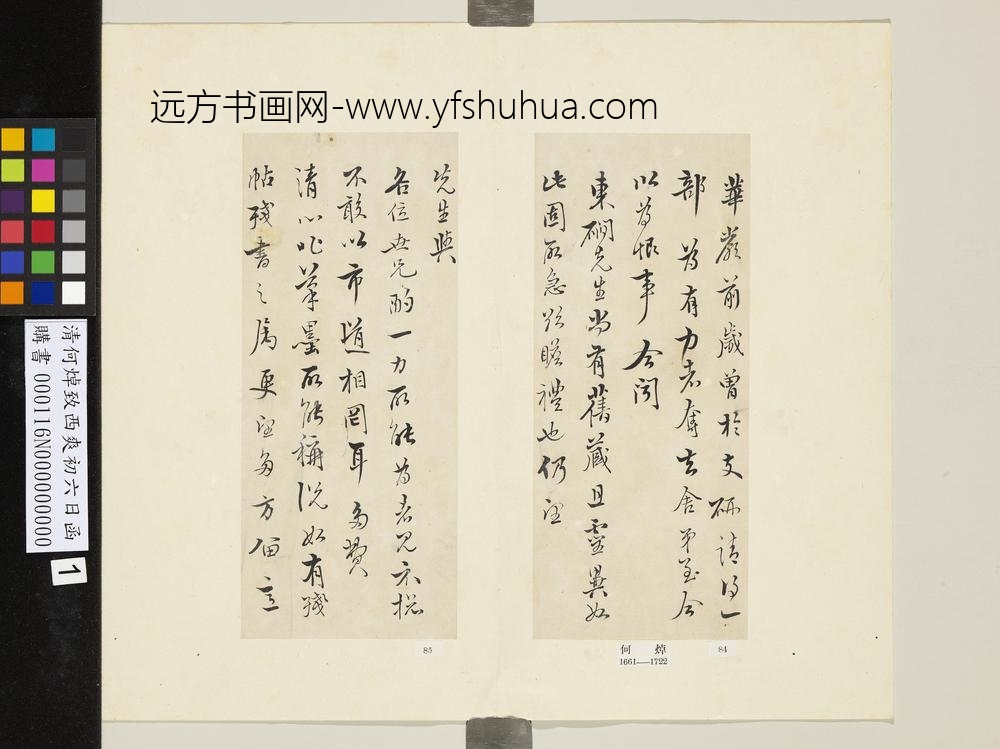 远方书画网-www.yfshuhua.com
華嚴前歲曾於支硎請得一
部為有力者奪去舍弟至今
以為恨事今聞
東磵先生尚有舊藏且靈異如
此固所急欲瞻禮也仍望
先生與
各位世兄酌一力所能為者見示
不敢以市道相罔耳多費
清心非筆墨所能稱況如有殘
帖殘書之屬更望多方留意
84
85
何焯
1661—1722
清何焯致西爽初六日函
購書 000116N000000000
1